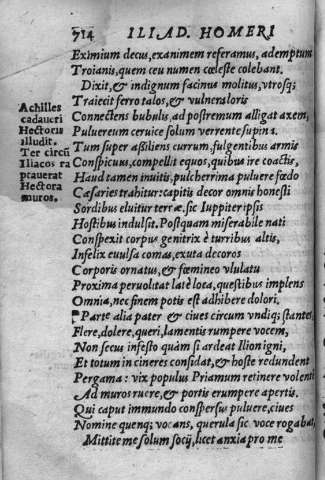 714 ILIAD. HOMERI
Eximium decus, exanimem referamus, ademptum
Troianis, quem ceu numen cœleste colebant.
Dixit, & indignum facinus molitus, vtrosq;
Traiecit ferro talos, & vulneraloris
Connectens bubulis, ad postremum alligat axem,
Puluereum ceruice solum verrente supina.
Tum super astiliens currum, fulgentibus armis
Conspicuus, compellit equos, quibus ire coactis,
Haud tamen inuitis, pulcherrima puluere fœdo
Cæsaries trahitur: capitis decor omnis honesti
Sordibus eluitur terræ. sic Iuppiter ipsis
Hostibus indulsit. Postquam miserabile nati
Conspexit corpus genitrix è turribus altis,
Infelix euulsa comas, exuta decoros
Corporis ornatus, & fœmineo vlulatu
Proxima peruolitat latè loca, questibus implens
Omnia, nec finem potis est adhibere dolori.
Parte alia pater & ciues circum vndiq; stantes,
Flere, dolere, queri, lamentis rumpere vocem,
Non secus infesto quàm si ardeat Ilion igni,
Et totum in cineres considat, & hoste redundent
Pergama: vix populus Priamum retinere volente
Ad muros ruere, & portis erumpere apertis.
Qui caput immundo conspersus puluere, ciues
Nomine quenq; vocans, querula sic voce rogabat,
Mittite me solum socij, licet anxia pro me
Achilles
cadaueri
Hectoris
illudit.
Ter circũ
Iliacos ra
ptauerat
Hectora
muros.